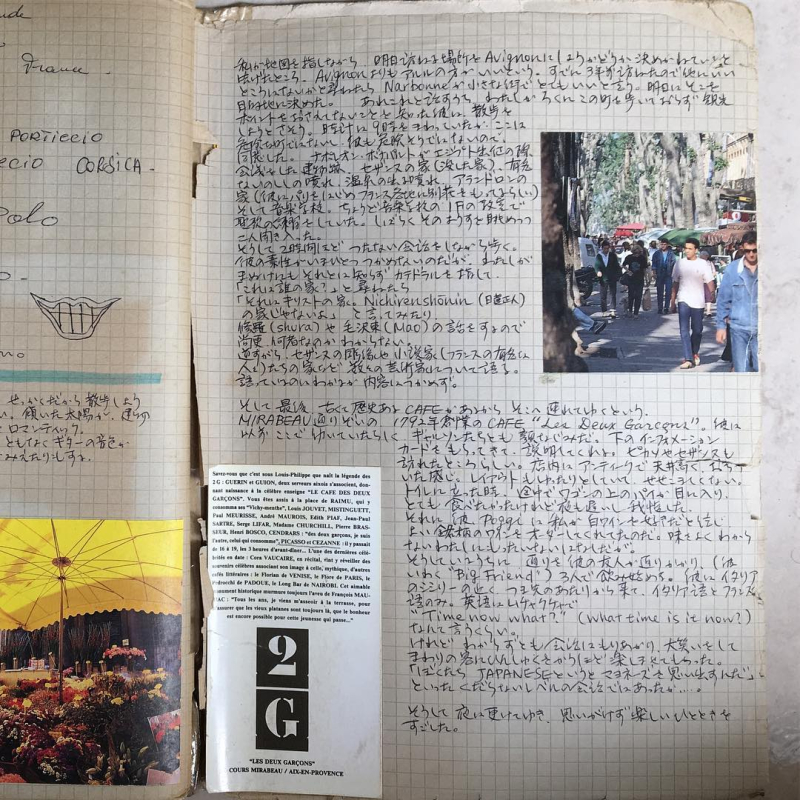 France
PORTICCIO
CORSICA
Polo
せっかくだから散歩しよう
私が地図を指しながら、明日訪ねる場所をAvignonにしようかどうか決めかねていると
告げたところ、Avignonよりもアルルの方がいいという。すでに3年前訪ねたので他にいい
ところはないかと尋ねたら Narbonneが小さな街でとてもいいと言う。明日はそこを
目的地に決めた。 あれこれと話すうち、わたしがろくにこの町も歩いておらず観光
ポイントもおさえてないことを知った彼は、散歩を
しようとさそう。時計は9時をまわっていたが、ここは
危険な町ではないし、彼も危険そうではないので、
同意した。ナポレオン・ボナパルトがエジプト遠征の際
会議をした建物、セザンヌの家(没した家)、有名
な の噴水、温泉の出る噴水、アランドロンの
家(彼はパリをはじめフランス各地に別荘をもってるらしい)
そして音楽学校。ちょうど音楽学校の1Fの教室で
聖歌の練習をしていた。しばらくそのようすを眺めつつ
二人聞き入った。
そうして2時間ほど つたない会話をしながら歩く。
彼の素性がいまひとつつかめないのだが、わたしが
まぬけにもそれとは知らず カテドラルを指して、
「これは誰の家?」と尋ねたら
「それはキリストの家。Nichirenshōnin(日蓮正人)
の家じゃないよ」と言ってみたり、
修羅(shura)や毛沢東(Mao)の話をするので
尚更、何者なのかわからない。
道すがら、セザンヌの 小説家(フランスの有名な
人)たちの家など 数々の芸術家について語る。
語っているのはわかるが内容はつかめず。
そして最後、古くて歴史あるCAFEがあるから そこへ連れてゆくという。
MIRABEAU通りぞいの 1792年創業のCAFE "Les Deux Garçons"。彼は
以前ここで働いていたらしく ギャルソンたちとも顔なじみだ。下のインフォメーション
カードをもらってきて、説明してくれる。ピカソやセザンヌも
訪れたところらしい。店内はアンティークで天井高く、
いた感じ。レイアウトもゆったりとしていて、せせこましくない。
トイレに立った時、途中でワゴンの上のパイが目に入り、
とても食べたかったけれど夜も遅いし、我慢した。
それに彼 Peggiに私が白ワインを好きだと信じ
よい銘柄のワインをオーダーしてくれてたのだ。味をよくわから
ないわたしにもったいないはなしだが。
そうしているうちに、通りを彼の友人が通りかかり、(彼
いわく "Big Friend")3人で飲み始める。彼はイタリア
のシシリーの近く つま先のあたりから来て、イタリア語とフランス
語のみ。英語は で
"Time now what?" (What time is it now?)
なんて言うくらい。
けれど わからずとも 会話はもりあがり、大笑いをして
まわりの客にひんしゅくをかうほど楽しませてもらった。
「ぼくたち JAPANESEというと マヨネーズを思い出すんだ」
といった くだらないレベルの会話ではあったが…。
そうして夜は更けてゆき、思いがけず楽しいひとときを
すごした。
Savez-vous que c'est sous Louis-Philippe que naît la légende des
2 G : GUERIN et GUION, deux serveurs ainsi s'associent, don-
nant naissance à la célèbre enseigne "LE CAFE DES DEUX
GARÇONS". Vous êtes assis à la place de RAIMU, qui y
consomma ses "Vichy-menthe", Louis JOUVET, MISTINGUETT,
Paul MEURISSE, André MAUROIS, Edith PIAF, Jean-Paul
SARTRE, Serge LIFAR, Madame CHURCHILL, Pierre BRAS-
SEUR, Henri BOSCO, CENDRARS : "des deux garçons, je suis
l'autre, celui qui consomme", PICASSO et CEZANNE : il y passait
de 16 à 19, les 3 heures d'avant-dîner... L'une des dernières célé-
brités en date : Cora VAUCAIRE, en récital, vint y réveiller des
souvenirs célèbres associant son image à celle, mythique, d'autres
cafés littéraires : le Florian de VENISE, le Flore de PARIS, le
Pedrocchi de PADOUE, le Long Bar de NAIROBI. Cet aimable
monument historique murmure toujours l'aveu de François MAU-
RIAC : "Tous les ans, je viens m'asseoir à la terrasse, pour
m'assurer que les vieux platanes sont toujours là, que le bonheur
est encore possible pour cette jeunesse qui passe..."
2
G
"LES DEUX GARÇONS"
COURS MIRABEAU / AIX-EN-PROVENCE